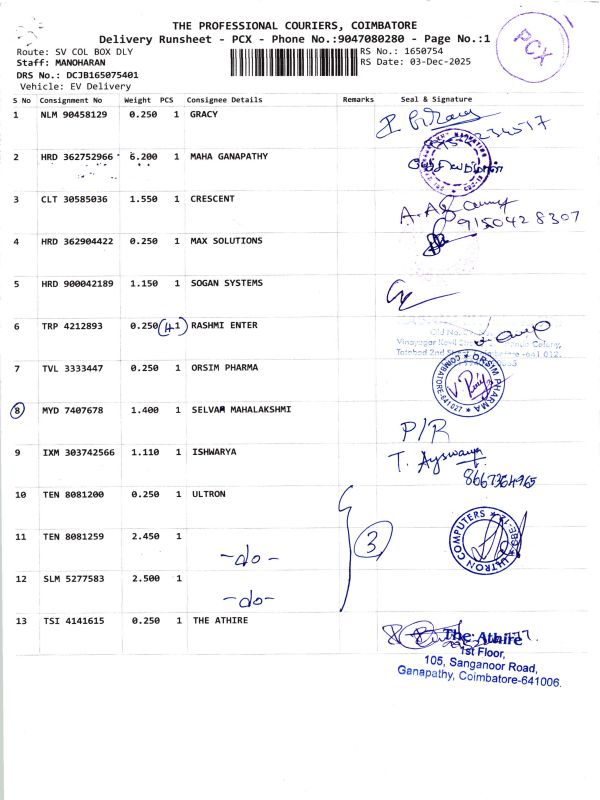 THE PROFESSIONAL COURIERS, COIMBATORE
Delivery Runsheet - PCX - Phone No.:9047080280 - Page No.:1
PCX
Route: SV COL BOX DLY
RS No.: 1650754
Staff: MANOHARAN
RS Date: 03-Dec-2025
DRS No.: DCJB165075401
Vehicle: EV Delivery
S No Consignment No Weight PCS Consignee Details Remarks Seal & Signature
1 NLM 90458129 0.250 1 GRACY
2 HRD 362752966 6.200 1 MAHA GANAPATHY
3 CLT 30585036 1.550 1 CRESCENT
9150428307
4 HRD 362904422 0.250 1 MAX SOLUTIONS
5 HRD 900042189 1.150 1 SOGAN SYSTEMS
6 TRP 4212893 0.250 1 RASHMI ENTER
7 TVL 3333447 0.250 1 ORSIM PHARMA
ORSIM PHARMA COIMBATORE-641027
8 MYD 7407678 1.400 1 SELVAM MAHALAKSHMI
P/R
9 IXM 303742566 1.110 1 ISHWARYA
T. Ayswarya
8667364965
10 TEN 8081200 0.250 1 ULTRON
11 TEN 8081259 2.450 1
-do-
3
ULTRON COMPUTERS
12 SLM 5277583 2.500 1
-do-
13 TSI 4141615 0.250 1 THE ATHIRE
The Athire
1st Floor,
105, Sanganoor Road,
Ganapathy, Coimbatore-641006.